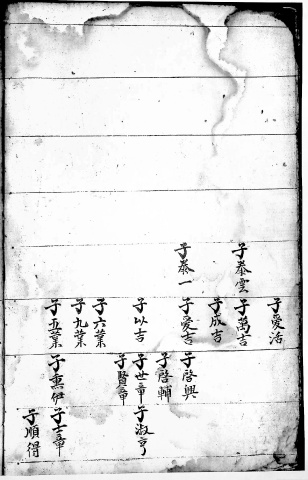 子泰雲
子泰一
子愛浩
子萬吉
子成吉
子愛吉
子以吉
子六葉
子九葉
子五葉
子啓興
子啓輔
子世章
子賢章
子惠伊
子淑亨
子士章
子順得